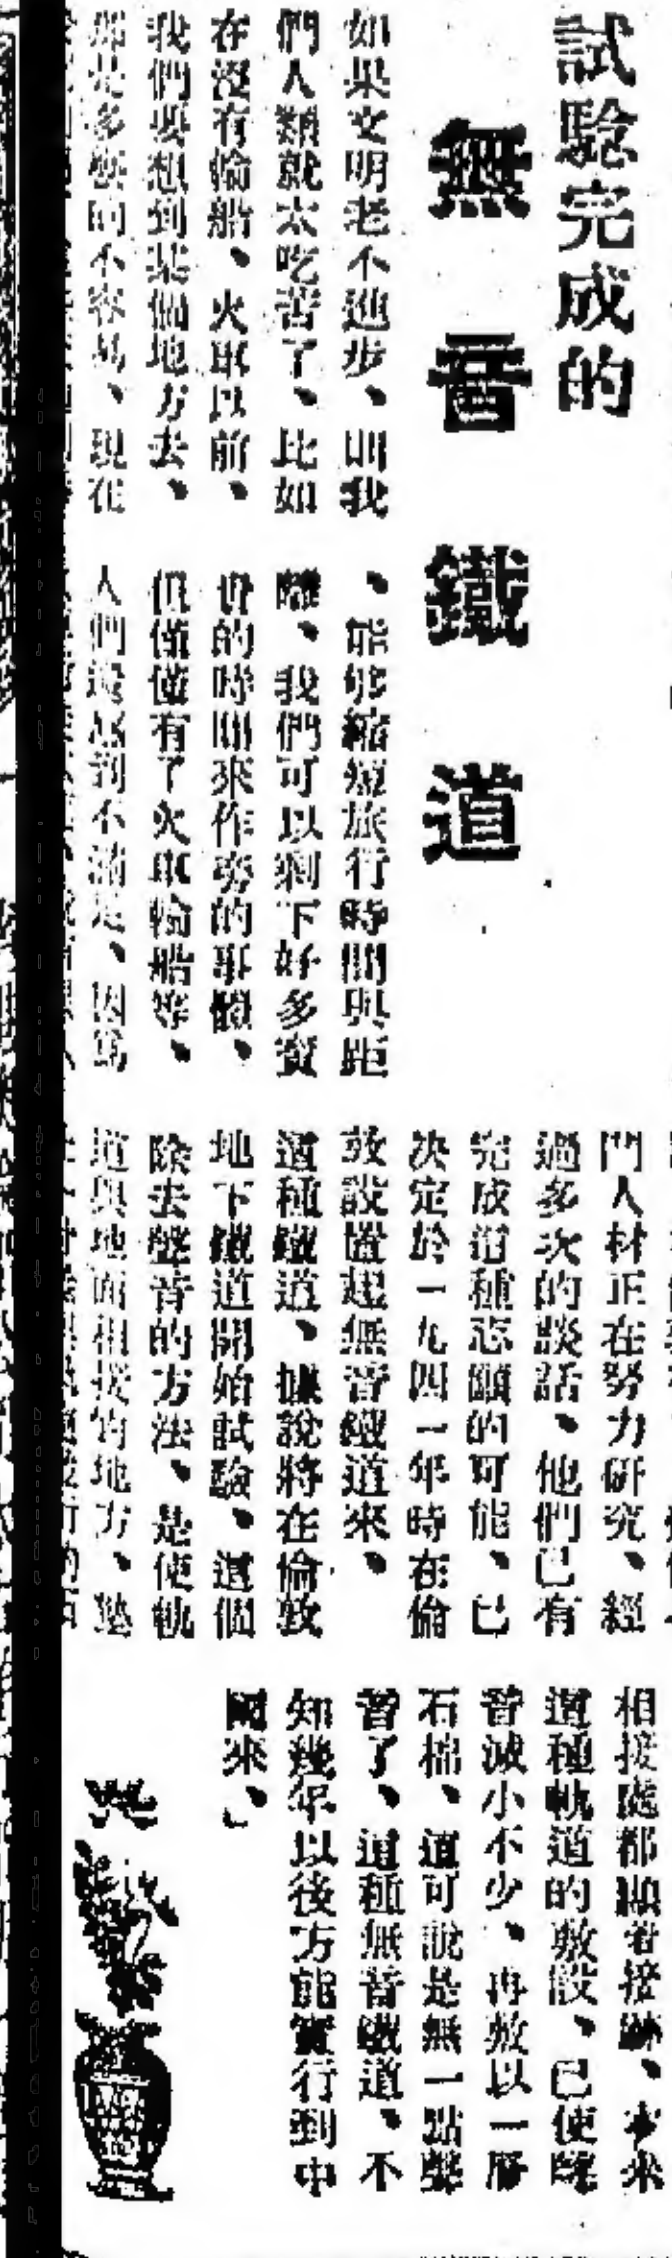 試驗完成的
無音鐵道
如果文明老不進步、叫我
們人類就太吃苦了、比如
在沒有輪船、火車以前、
我們要想到某個地方去、
那是多麼的不容易、現在
、能够縮短旅行時間與距
離、我們可以剩下好多寶
貴的時間來作旁的事體、
但僅僅有了火車輪船等、
人們還感到不滿足、因爲
門人材正在努力研究、經
過多次的談話、他們已有
完成這種志願的可能、已
决定於一九四一年時在倫
敦設置起無音鐵道來、
這種鐵道、據說將在倫敦
地下鐵道開始試驗、這個
除去聲音的方法、是使軌
道與地面相接的地方、墊
相接處都顯着接跡、本來
這種軌道的敷設、已使聲
音減小不少、再敷以一層
石棉、這可說是無一點聲
音了、這種無音鐵道、不
知幾年以後方能實行到中
國來、」